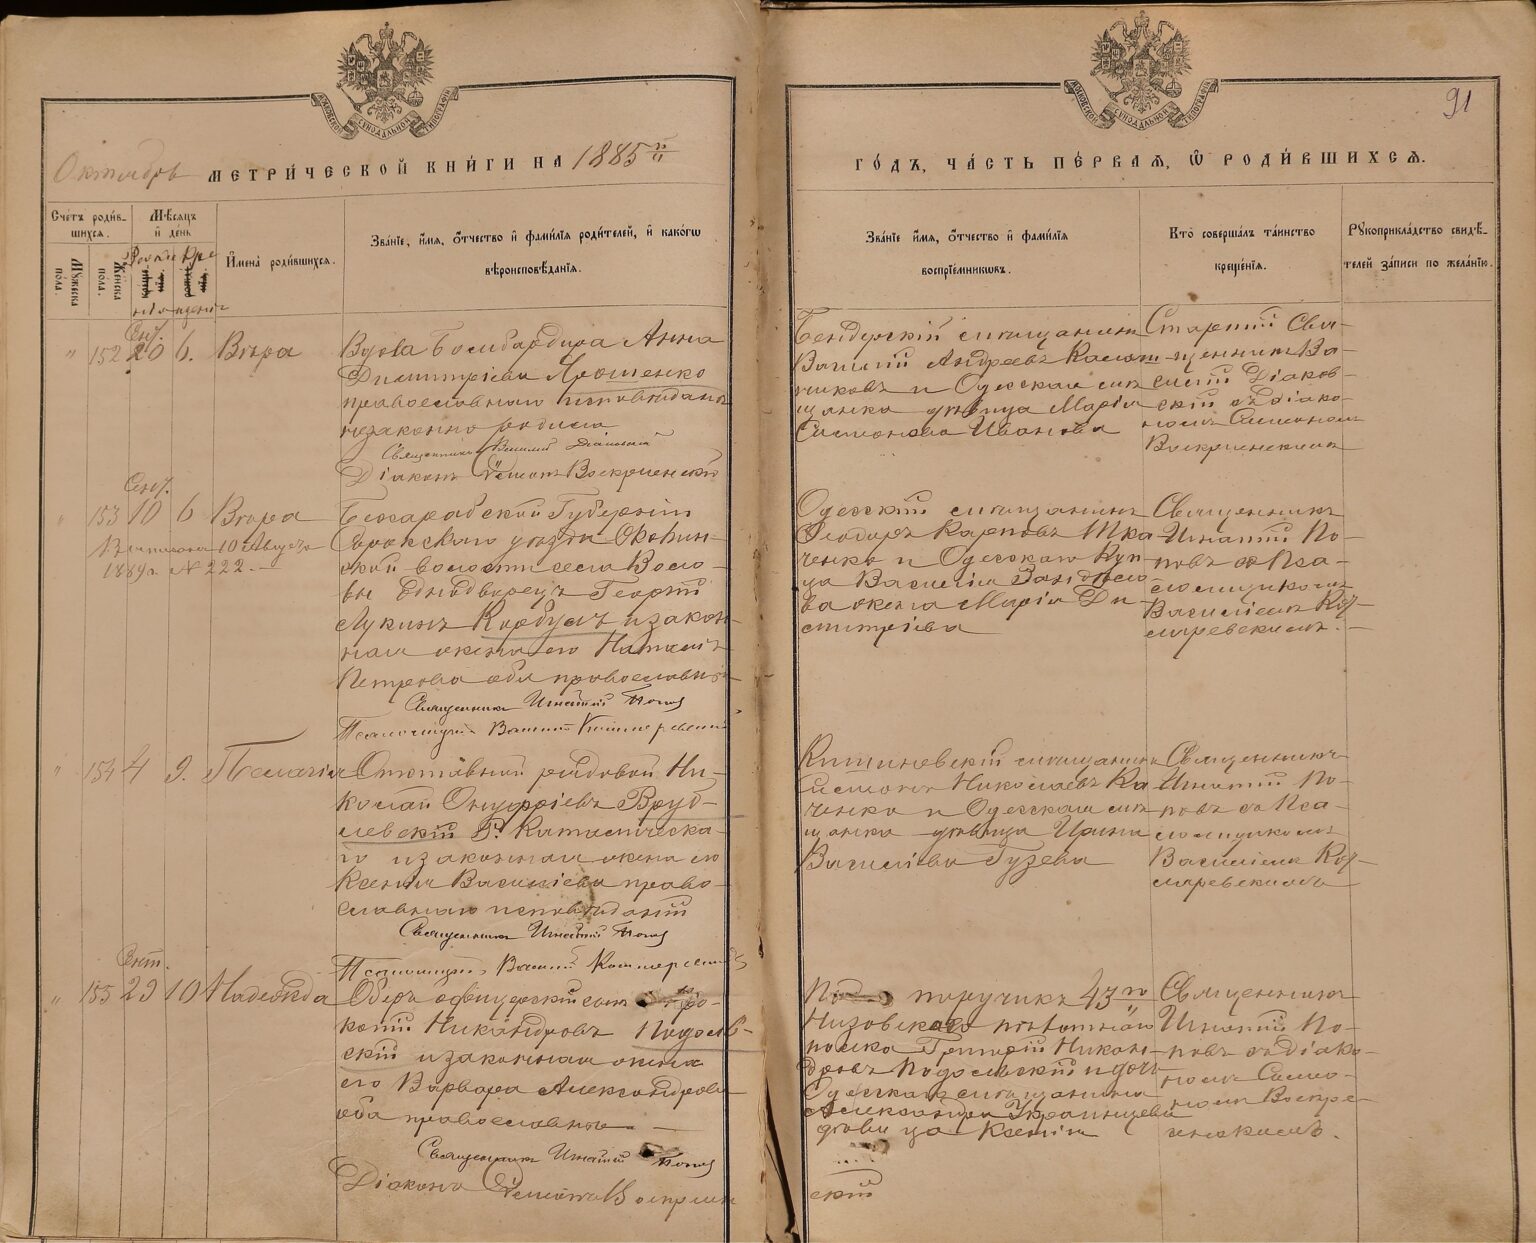 91
Октябрь МЕТРИ́ЧЕСКОЙ КНИ́ГИ НА 1885й
ГО́ДЪ, ЧА́СТЬ ПЕ́РВАЯ, Ѽ РОДИ́ВШИХСЯ.
Сче́тъ роди́вшихся.
Му́жеска полъ.
Же́нска полъ.
Мѣ́сяцъ и҆ де́нь
И҆мена̀ роди́вшихся.
Зва́нїе, и҆́мя, ѻ҆́тчество и҆ фами́лїя роди́телей, и҆ како́гѡ
вѣроисповѣ́данїя.
Зва́нїе и҆́мя, ѻ҆́тчество и҆ фами́лїя
воспрїе́мниковъ.
Кто̀ соверша́лъ та́инство
креще́нїя.
Рꙋкоприкла́дство свидѣ́-
телей за́писи по жела́нїю.
Сент.
" 152 20 6. Вѣра
Вдова Бомбардира Анна
Димитріева Ярошенко
православнаго исповѣданія
незаконно родила
Священникъ Василий Діаковскій
Діаконъ Симеонъ Воскресенскій
Бендерскій мѣщанинъ
Василій Андреевъ Калаш-
никовъ и Одесская мѣ-
щанка дѣвица Марія
Симонова Иванова
Старшій Свя-
щенникъ Ва-
силій Діаков-
скій съ діако-
номъ Симеономъ
Воскресенскимъ
Сент.
" 153 10 6 Вѣра
Выписана 10 Августа
1889 г. № 222.
Бессарабской Губерніи
Сорокскаго уѣзда
ской волости села
вы Однодворецъ Георгій
Лукинъ Корбулъ и закон-
ная жена его Наталія
Петрова оба православные
Священникъ Игнатій Поповъ
Псаломщикъ Василій
Одесскій мѣщанинъ
Ѳеодоръ Карповъ Тка-
ченко и Одесскаго Куп-
ца Василія
ва жена Марія Ди-
митріева
Священникъ
Игнатій По-
повъ съ Пса-
ломщикомъ
Василіемъ
" 154 4 9. Пелагія
Отставный рядовой Ни-
колай Онуфріевъ Вруб-
левскій Р. Католическа-
го и законная жена его
Ксенія Василіева право-
славнаго исповѣданій
Священникъ Игнатій Поповъ
Псаломщикъ Василій
Кишиневскій мѣщанинъ
Симеонъ Николаевъ
ченко и Одесская мѣ-
щанка дѣвица Ирина
Василіева Гузева
Священникъ
Игнатій По-
повъ съ Пса-
ломщикомъ
Василіемъ
Сент.
" 155 29 10 Надежда
Оберъ офицерскій сынъ Про-
копій Никандровъ Подоль-
скій и законная жена
его Варвара Александрова
оба православные
Священникъ Игнатій Поповъ
Діаконъ Симеонъ Воскресен
Под поручикъ 43го
Низовскаго пѣхотнаго
полка Григорій Никан-
дровъ Подольскій и дочь
Одесскаго мѣщанина
Александра
дѣвица Ксенія
скій
Священникъ
Игнатій По-
повъ съ діако-
номъ Симео-
номъ Воскре-
сенскимъ.